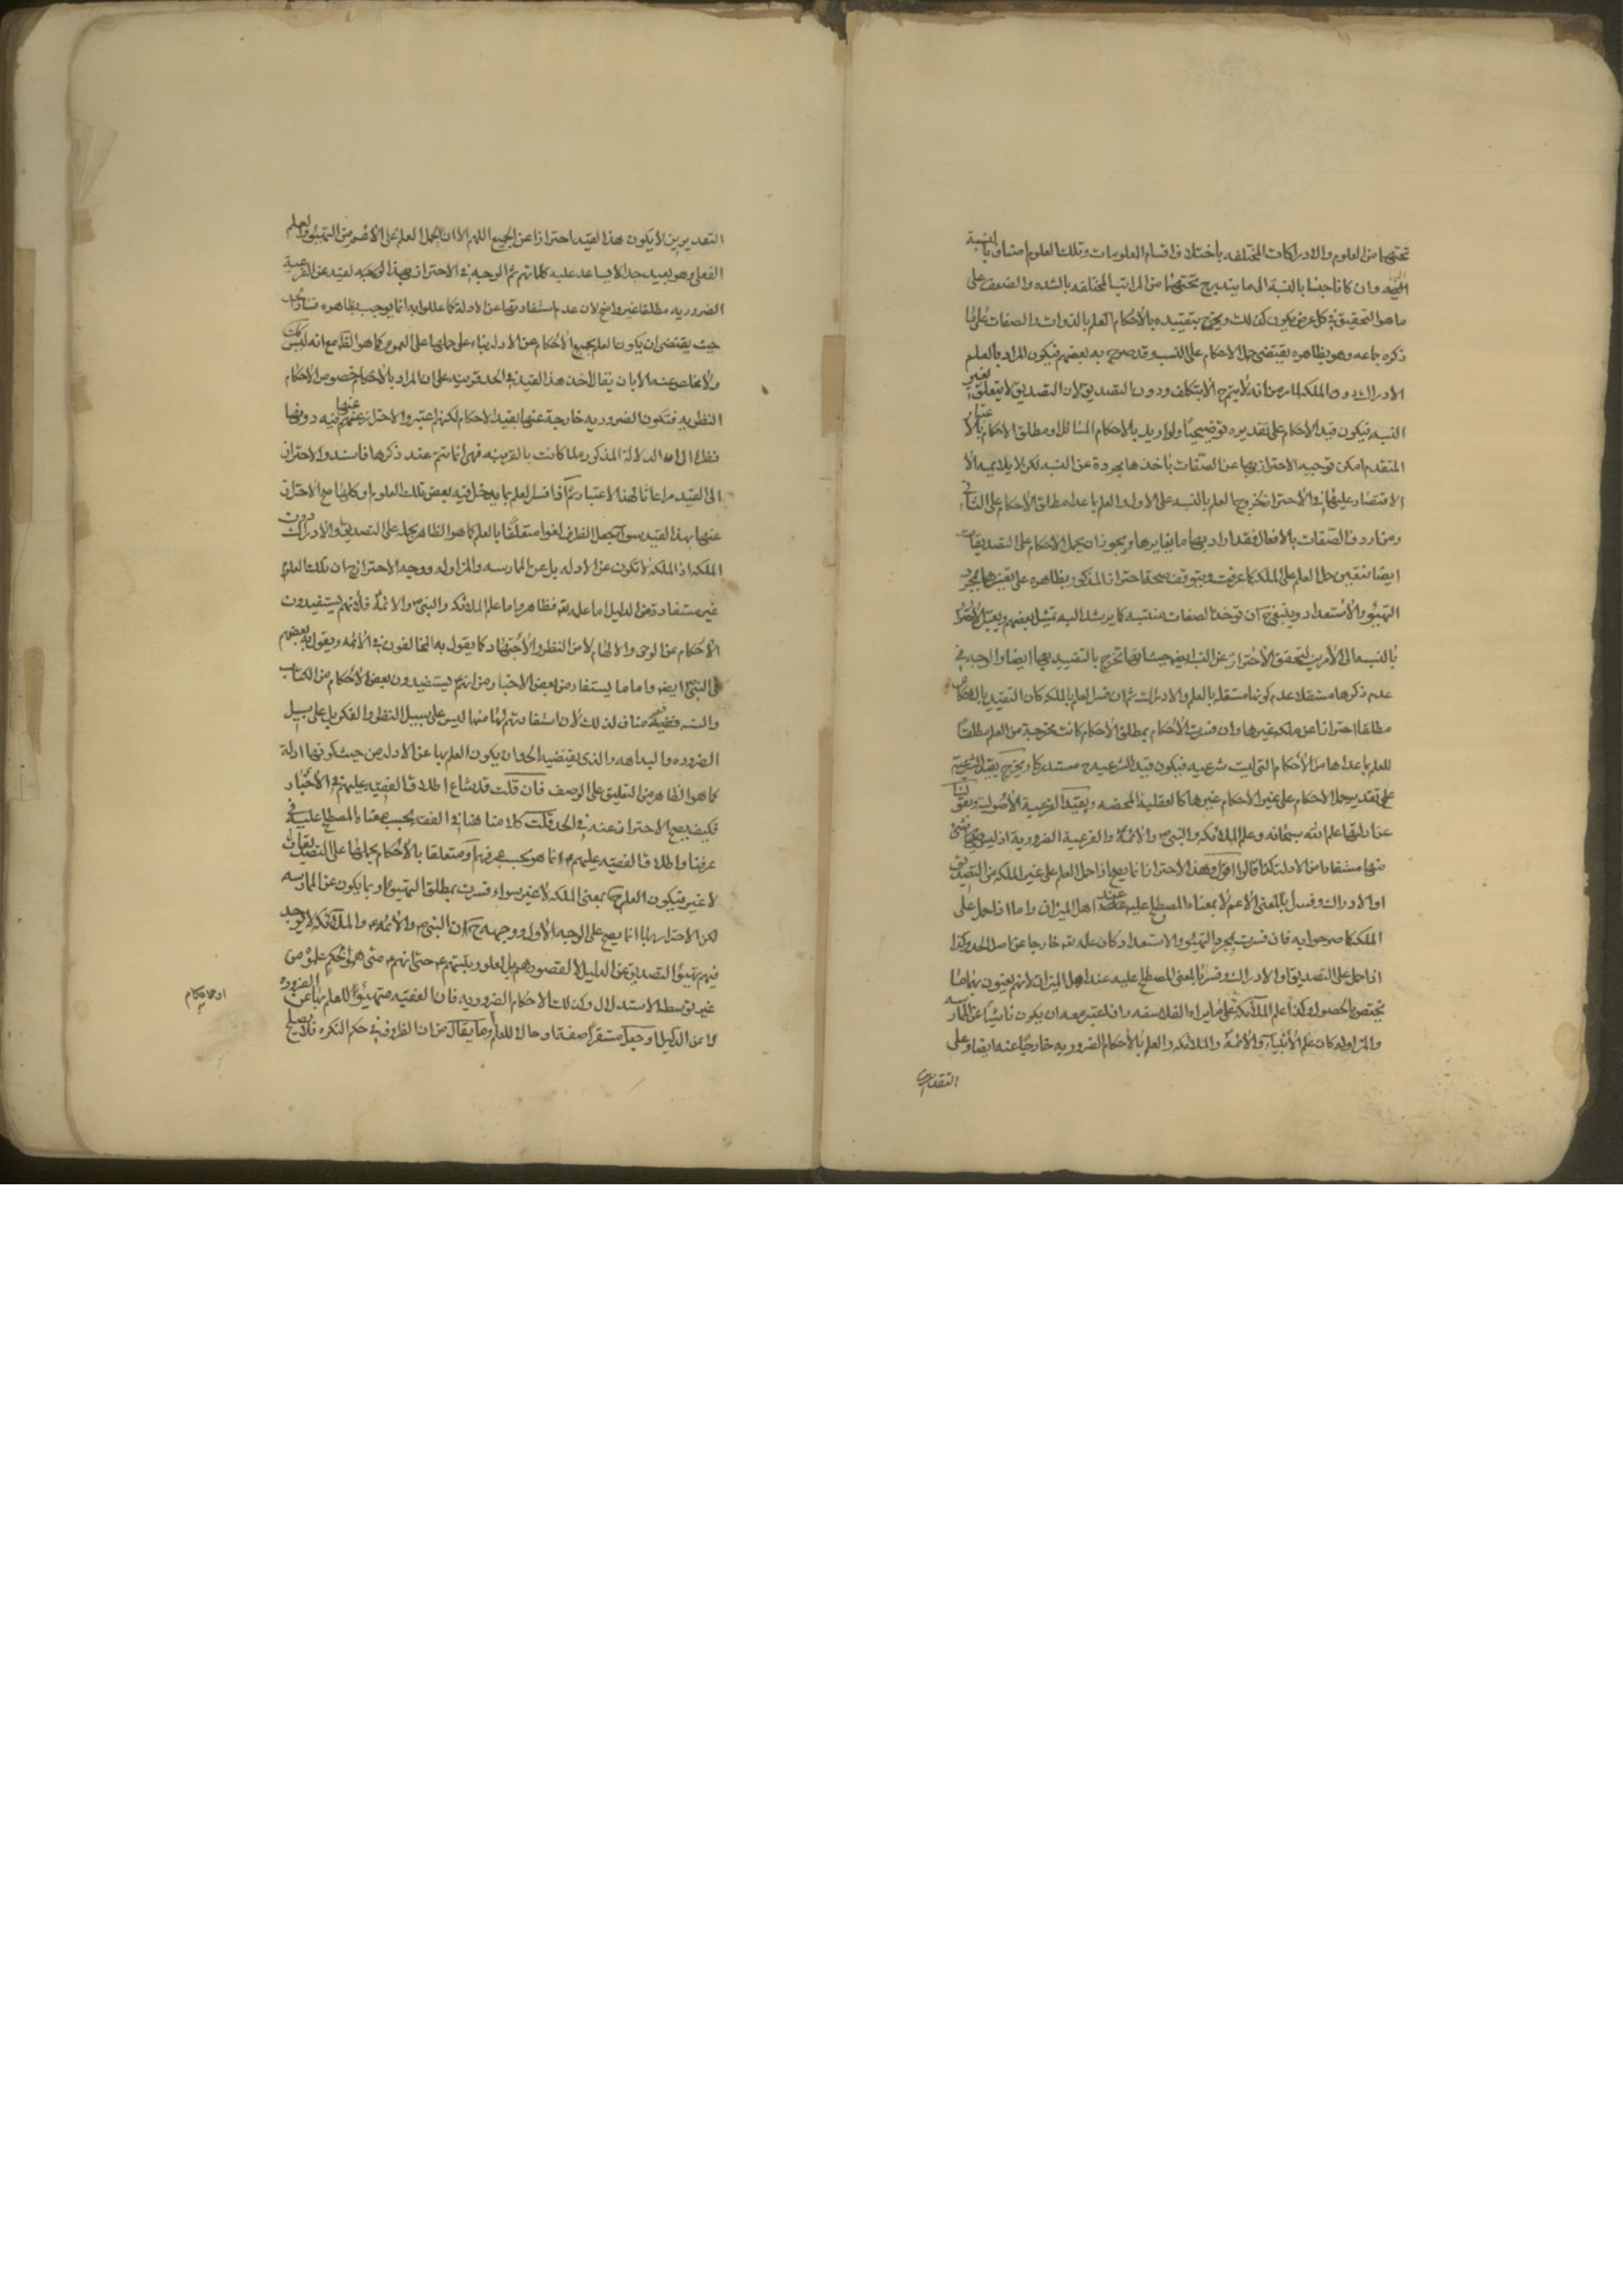 تحتهما من العلوم والادراكات المختلفه باختلاف اقسام المعلومات وتلك العلوم اصناف بالنسبة
اليهما وان كانا جنسا بالنسبة الى ما يندرج تحتهما من المراتب المختلفه بالشده والضعف على
ما هو التحقيق في كل عرض يكون كذلك ويخرج بتقييده بالاحكام العلم بالذوات والصفات على ما
ذكره جماعه وهو بظاهره يقتضى حمل الاحكام على النسب وقد صرح به بعضهم فيكون المراد بالعلم
الادراك دون الملكه لما مر من انه لا يتم ح الا بتكلف ودون التصديق لان التصديق لا يتعلق بغير
النسبه فيكون قيد الاحكام على تقديره توضيحيا ولو اريد بالاحكام المسائل او مطلق الاحكام بالاعتبار
المتقدم امكن توجيه الاحتراز بها عن الصفات باخذها مجردة عن النسبه لكن لا يلائمه الا
الاقتصار عليهما في الاحتراز لخروج العلم بالنسبه على الاول والعلم بما عدا مطلق الاحكام على الثاني
ومن اردف الصفات بالافعال فقد اراد بها ما يغايرها ويجوز ان يحمل الاحكام على التصديقات
ايضا فتعين حمل العلم على الملكه كما عرفت ويتوقف صحة احتراز المذكور بظاهره على تفسيرها بمجرد
التهيؤ والاستعداد وينبغي ح ان توخذ الصفات منتسبه كما يرشد اليه تمثيل بعضهم ويعتبر الاحتراز
بالنسبه الى الامرين ليتحقق الاحتراز عن النسب ايضا حيث انها تخرج بالتقييد بها ايضا والوجه في
عدم ذكرها مستقلا عدم كونها مستقله بالعلم والادراك ثم ان فسر العلم بالملكه كان التقييد بالاحكام
مطلقا احترازا عن ملكه غيرها وان فسرت الاحكام بمطلق الاحكام كانت مخرجة من العلم مطلقا
للعلم بما عداها من الاحكام التي ليست شرعيه فيكون قيد الشرعيه ح مستدركا ويخرج بقيد الشرعية
على تقدير حمل الاحكام على غير الاحكام غيرها كالعقلية المحضه وبقيد الفرعية الاصولية وبقولنا
عن ادلتها علم الله سبحانه وعلم الملائكه والنبي والائمة والفرعية الضرورية اذ ليس شئ
منها مستفادا من الادلة كذا قالوا اقول وهذا الاحتراز انما يصح اذا حمل العلم على غير الملكه من التصديق
او الادراك وفسر بالمعنى الاعم لا بمعناه المصطلح عليه عند اهل الميزان واما اذا حمل على
الملكه كما صرحوا به فان فسرت بمجرد التهيؤ والاستعداد كان علمه تعم خارجا عن اصل الحد وكذا
اذا حمل على التصديق او الادراك وفسر بالمعنى المصطلح عليه عند اهل الميزان لانهم يعنون بهما ما
يختص بالحصولى وكذا علم الملائكة على ما يراه الفلاسفه وان اعتبر معه ان يكون ناشيا عن الممارسه
والمزاوله كان علم الانبياء والائمة والملائكه والعلم بالاحكام الضروريه خارجا عنه ايضا وعلى
التقديرين
التقديرين لا يكون هذا القيد احترازا عن الجميع اللهم الا ان يحمل العلم على الاعم من التهيؤ والعلم
الفعلى وهو بعيد جدا لا يساعد عليه كلماتهم ثم الوجه في الاحتراز بهذا الوجه لقيد عن الفرعية
الضروريه مطلقا غير واضح لان عدم استفادتها عن الادلة كما عللوا به انما يوجب بظاهره فساد الحد
حيث يقتضى ان يكون العلم بجميع الاحكام عن الادلة بناء على حملها على العموم كما هو الظاهر مع انه ليس كذلك
ولا مخلص عنه الا بان يقال اخذ هذا القيد في الحد قرينه على ان المراد بالاحكام خصوص الاحكام
النظريه فتكون الضروريه خارجة عنها بقيد الاحكام لكنهم اعتبروا الاحتراز عنها فيه دونها
نظرا الى ان الدلالة المذكوره لما كانت بالقرينه فهى انما تتم عند ذكرها فاسندوا الاحتراز
الى القيد مراعاتا لهذا الاعتبار ثم اذا فسر العلم بما يدخل فيه بعض تلك العلوم او كلها صح الاحتراز
عنها بهذا القيد سواء جعل الظرف لغوا متعلقا بالعلم كما هو الظاهر بحمله على التصديق والادراك دون
الملكه اذ الملكه لا تكون عن الادله بل عن الممارسه والمزاوله ووجه الاحتراز ح ان تلك العلوم
غير مستفادة من الدليل اما علمه تعم فظاهر واما علم الملائكه والنبي والائمة فلانهم يستفيدون
الاحكام عن الوحى والالهام لا من النظر والاجتهاد كما يقول به المخالفون في الائمه ويقول به بعضهم
في النبي ايضا واما ما يستفاد من بعض الاخبار من انهم يستفيدون بعض الاحكام من الكتاب
والسنه فغير مناف لذلك لان استفادتهم لها منها ليس على سبيل النظر والفكر بل على سبيل
الضروره والبداهه والذى يقتضيه الحد ان يكون العلم بها عن الادله من حيث كونها ادلة
كما هو الظاهر من التعليق على الوصف فان قلت قد شاع اطلاق الفقيه عليهم في الاخبار
فكيف يصح الاحتراز عنه في الحد قلت كلامنا هنا في الفقه بحسب معناه المصطلح عليه في
عرفنا واطلاق الفقيه عليهم ع انما هو بحسب عرفهم او متعلقا بالاحكام بحملها على التصديقات
لا غير فيكون العلم ح بمعنى الملكه لا غير سواء فسرت بمطلق التهيؤ او بما يكون عن الممارسه
لكن الاحتراز بها انما يصح على الوجه الاول ووجهه ح ان النبي والائمة والملائكه لا يوجد
فيهم تهيؤ التصديق عن الدليل لا لقصورهم بل لعلو رتبتهم ع حتى انهم متى هموا بحكم علموه من
غير توسط الاستدلال وكذلك الاحكام الضروريه فان الفقيه متهيؤ للعلم بها عن الضرورة
لا عن الدليل او جعل مستقرا صفة او حالا للعلم وما يقال من ان الظروف في حكم النكره فلا يصلح